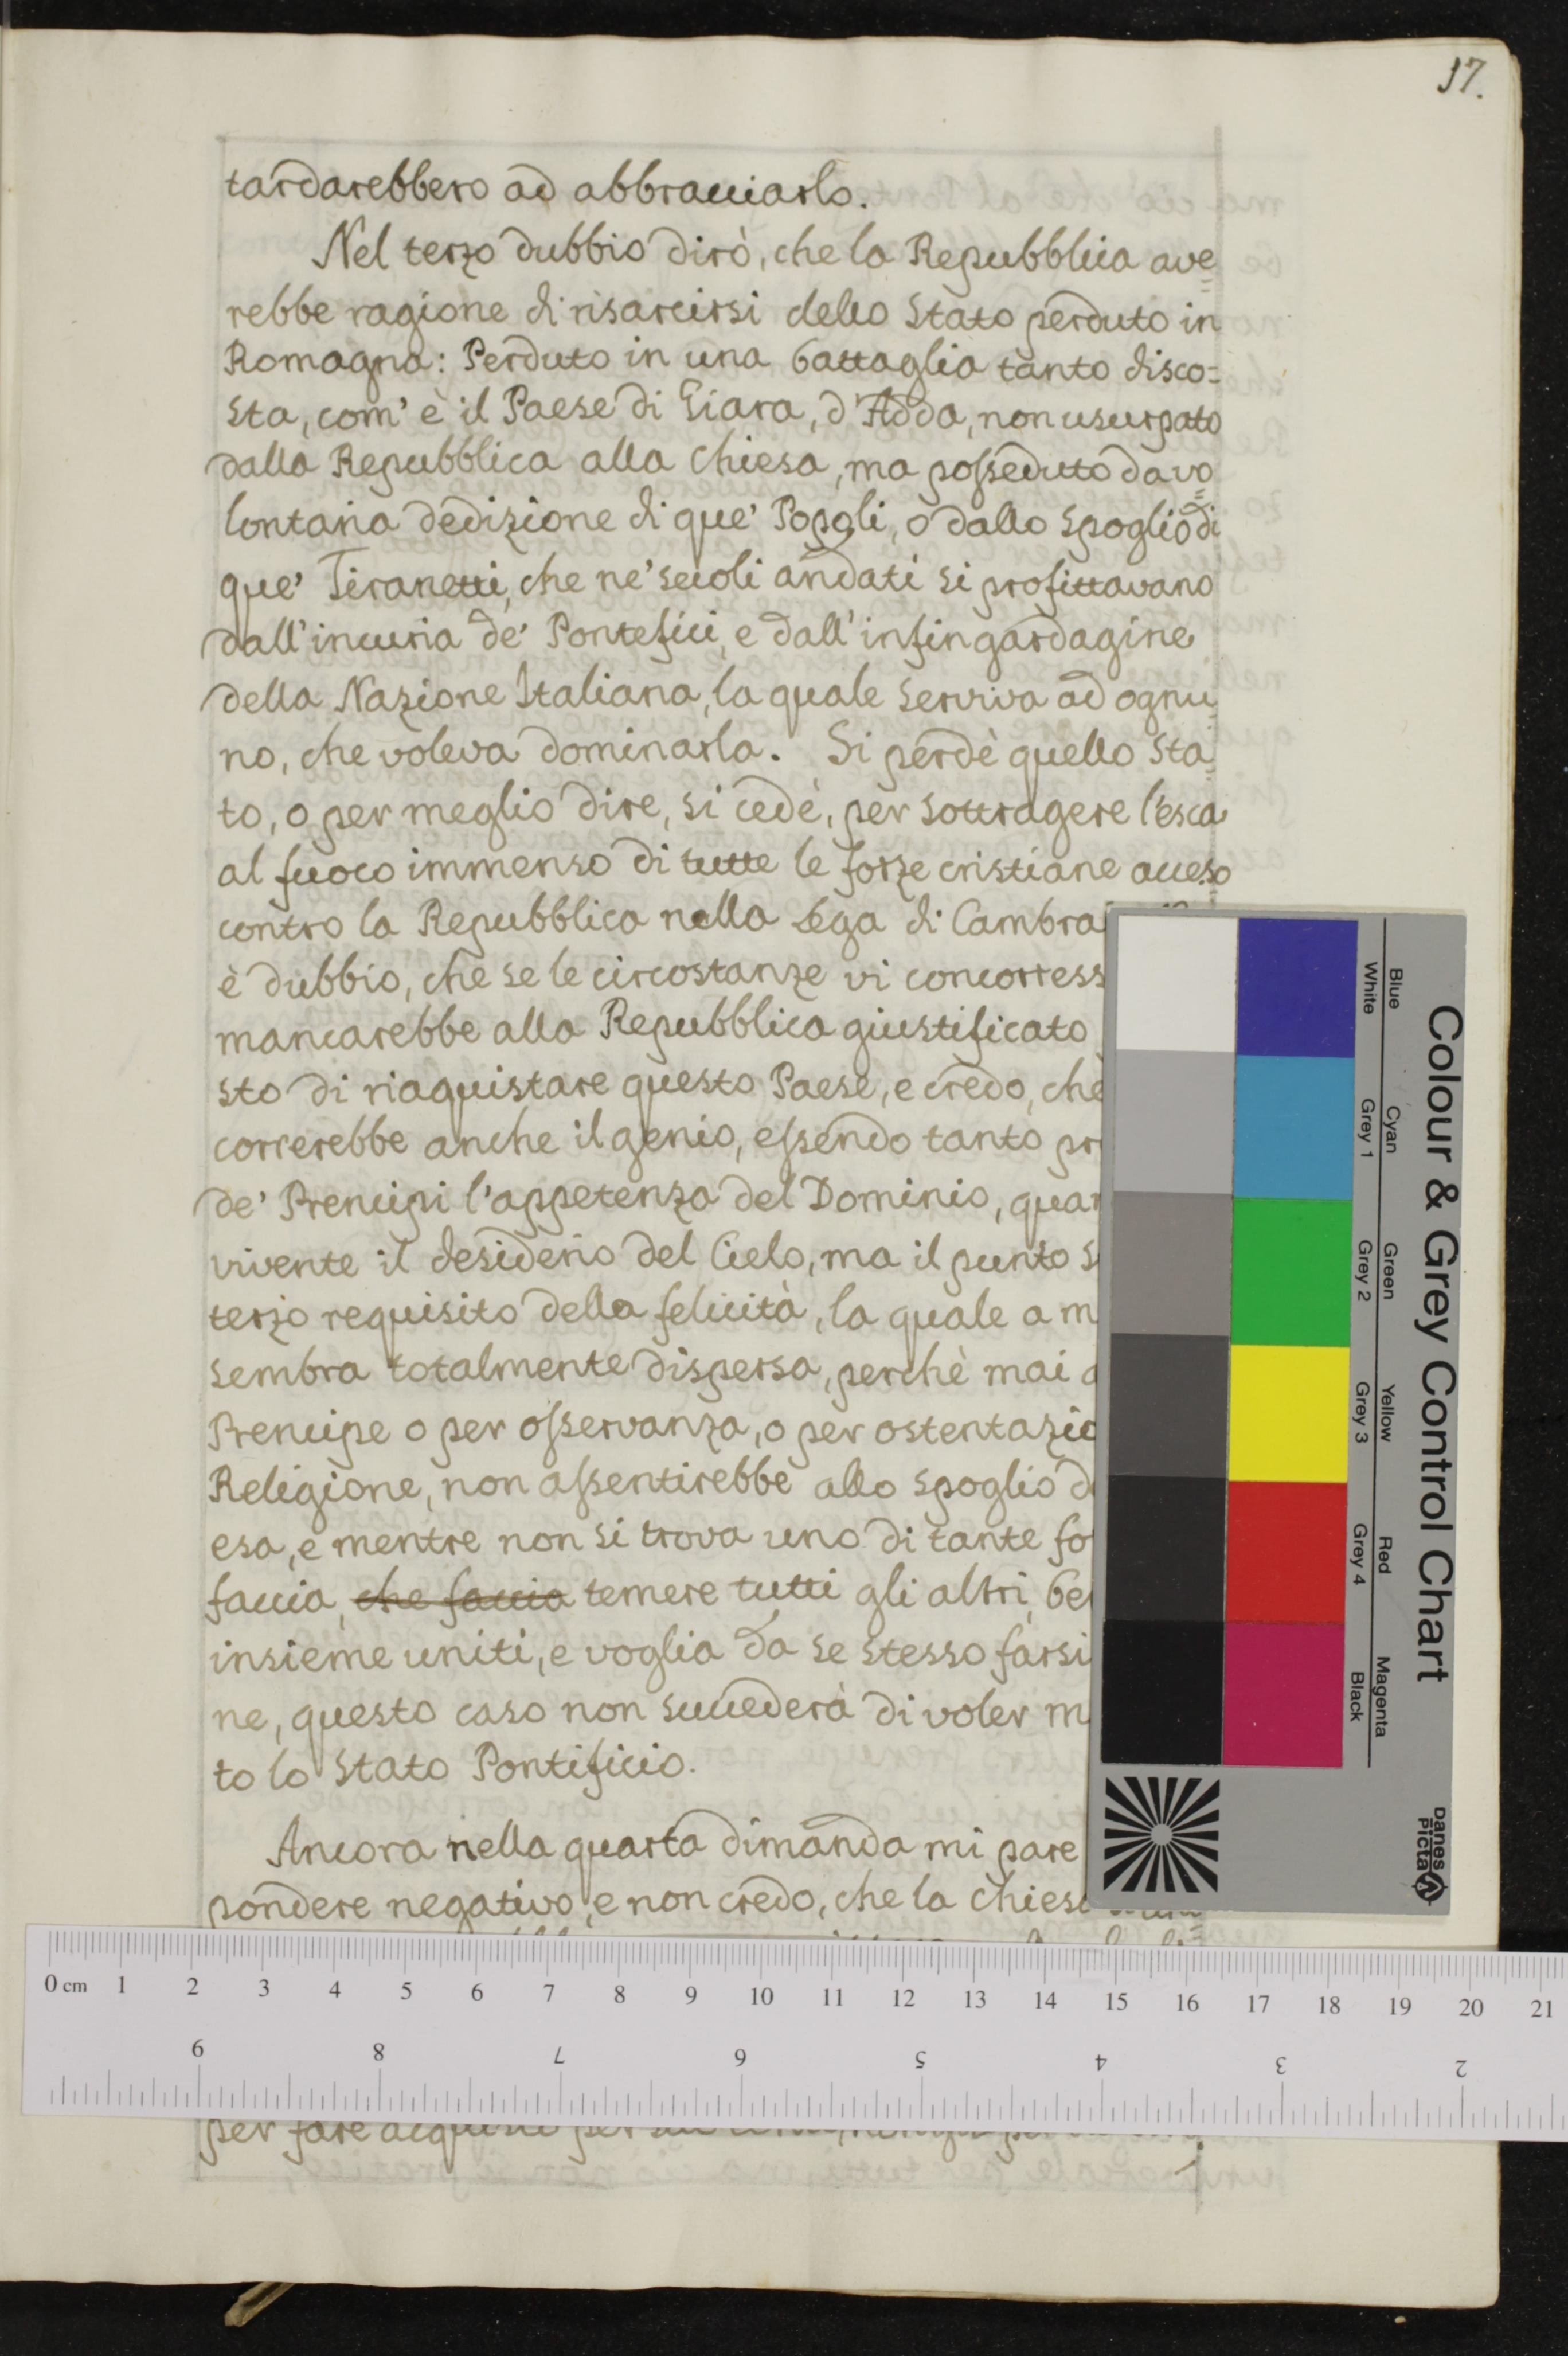 17.
tardarebbero ad abbracciarlo.
Nel terzo dubbio dirò, che la Repubblica ave=
rebbe ragione di risarcirsi dello Stato perduto in
Romagna: Perduto in una battaglia tanto disco=
sta, com' è il Paese di Giara, d'Adda, non usurpato
dalla Repubblica alla Chiesa, ma posseduto da vo=
lontaria dedizione di que' Popoli, o dallo spoglio di
que' Tiranetti, che ne' secoli andati si profittavano
dall'incuria de' Pontefici, e dall'infingardagine
della Nazione Italiana, la quale serviva ad ognu=
no, che voleva dominarla. Si perdè quello Sta=
to, o per meglio dire, si cedè, per sottragere l'esca
al fuoco immenso di tutte le forze cristiane acceso
contro la Repubblica nella Lega di Cambra
è dubbio, che se le circostanze vi concorress
mancarebbe alla Repubblica giustificato
sto di riaquistare questo Paese, e credo, che
correrebbe anche il genio, essendo tanto pr
de' Prencipi l'appetenza del Dominio, quan
vivente il desiderio del Cielo, ma il punto s
terzo requisito della felicità, la quale a m
sembra totalmente dispersa, perchè mai
Prencipe o per osservanza, o per ostentazio
Religione, non assentirebbe allo spoglio d
esa, e mentre non si trova uno di tante fo
faccia, che faccia temere tutti gli altri, be
insieme uniti, e voglia da se stesso farsi
ne, questo caso non succederà di voler m
to lo Stato Pontificio.
Ancora nella quarta dimanda mi pare
pondere negativo, e non credo, che la Chiesa
per fare acquisti per
Colour & Grey Control Chart
Blue Cyan Green Yellow Red Magenta
White Grey 1 Grey 2 Grey 3 Grey 4 Black
Danes
Picta
0 cm 1 2 3 4 5 6 7 8 9 10 11 12 13 14 15 16 17 18 19 20 21
2 3 4 5 6 7 8 9